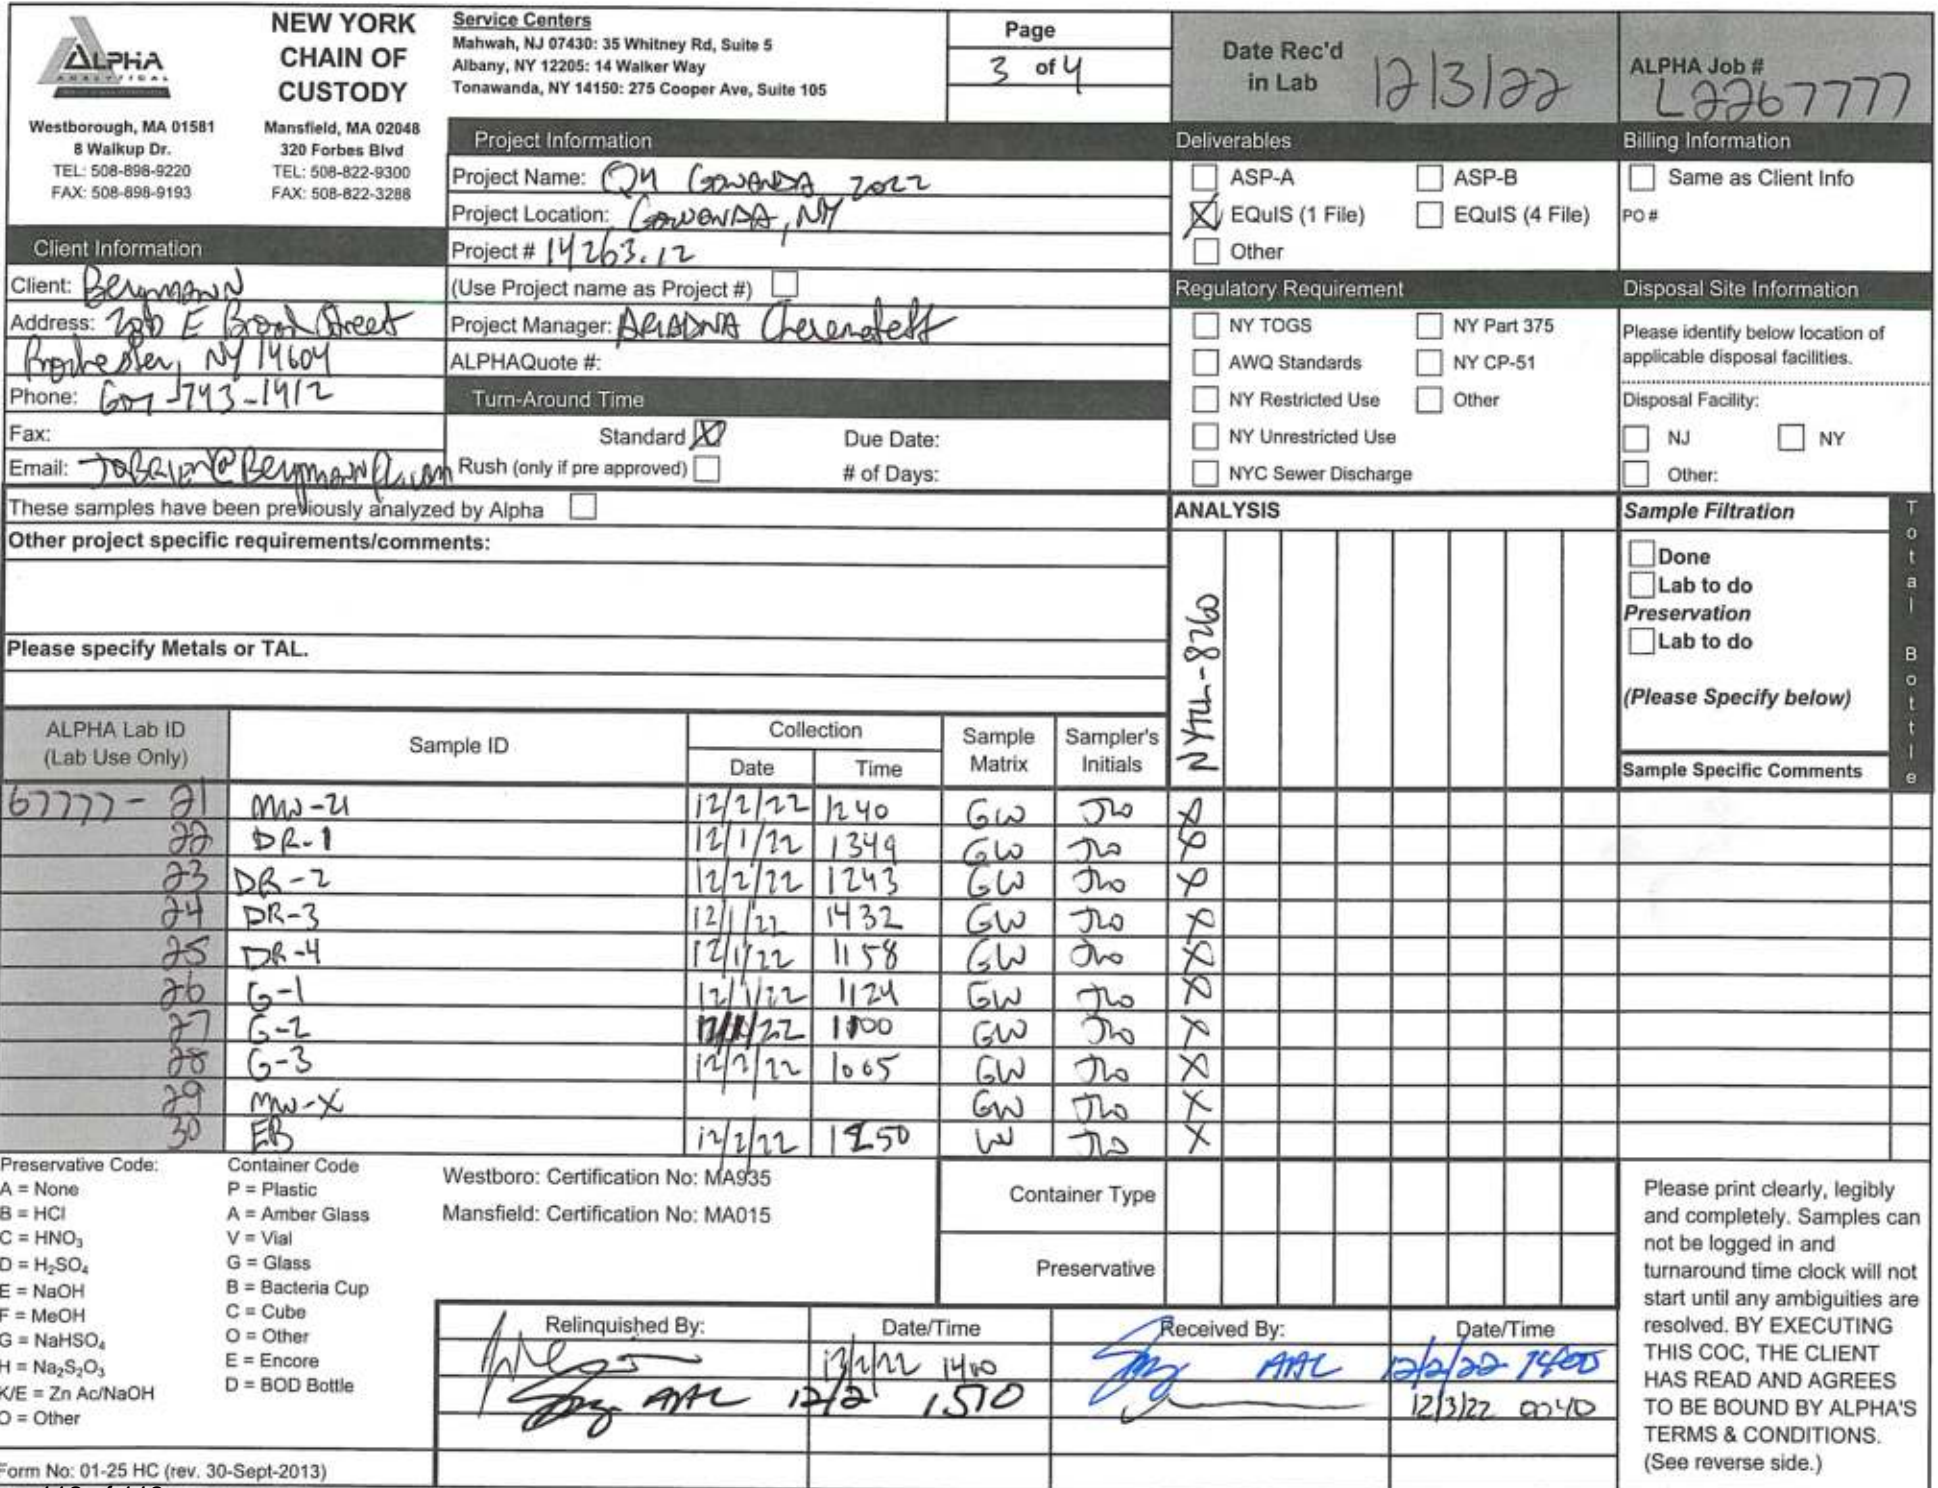 ALPHA
ANALYTICAL
NEW YORK
CHAIN OF
CUSTODY
Westborough, MA 01581
8 Walkup Dr.
TEL: 508-898-9220
FAX: 508-898-9193
Mansfield, MA 02048
320 Forbes Blvd
TEL: 508-822-9300
FAX: 508-822-3288
Service Centers
Mahwah, NJ 07430: 35 Whitney Rd, Suite 5
Albany, NY 12205: 14 Walker Way
Tonawanda, NY 14150: 275 Cooper Ave, Suite 105
Page
3 of 4
Date Rec'd
in Lab 12/3/22
ALPHA Job #
L2267777
Client Information
Client: Bergmann
Address: 200 E Broad Street
Rochester, NY 14604
Phone: 607-743-1912
Fax:
Email: JOBRIEN@
Project Information
Project Name: Q4 GOWANDA 2022
Project Location: GOWANDA, NY
Project # 14263.12
(Use Project name as Project #)
Project Manager: ARIADNA
ALPHAQuote #:
Turn-Around Time
Standard X Due Date:
Rush (only if pre approved) # of Days:
Deliverables
ASP-A ASP-B
X EQuIS (1 File) EQuIS (4 File)
Other
Regulatory Requirement
NY TOGS NY Part 375
AWQ Standards NY CP-51
NY Restricted Use Other
NY Unrestricted Use
NYC Sewer Discharge
Billing Information
Same as Client Info
PO #
Disposal Site Information
Please identify below location of
applicable disposal facilities.
Disposal Facility:
NJ NY
Other:
These samples have been previously analyzed by Alpha
Other project specific requirements/comments:
Please specify Metals or TAL.
ANALYSIS
NYTCL-8260
Sample Filtration
Done
Lab to do
Preservation
Lab to do
(Please Specify below)
Sample Specific Comments
Total Bottle
ALPHA Lab ID
(Lab Use Only)
Sample ID
Collection
Date Time
Sample
Matrix
Sampler's
Initials
67777-21 MW-21 12/2/22 1240 GW JLO X
22 DR-1 12/1/22 1349 GW JLO X
23 DR-2 12/2/22 1243 GW JLO X
24 DR-3 12/1/22 1432 GW JLO X
25 DR-4 12/1/22 1158 GW JLO X
26 G-1 12/1/22 1124 GW JLO X
27 G-2 22 1100 GW JLO X
28 G-3 12/2/22 1005 GW JLO X
29 MW-X GW JLO X
30 EB 12/2/22 1250 W JLO X
Preservative Code:
A = None
B = HCl
C = HNO₃
D = H₂SO₄
E = NaOH
F = MeOH
G = NaHSO₄
H = Na₂S₂O₃
K/E = Zn Ac/NaOH
O = Other
Container Code
P = Plastic
A = Amber Glass
V = Vial
G = Glass
B = Bacteria Cup
C = Cube
O = Other
E = Encore
D = BOD Bottle
Westboro: Certification No: MA935
Mansfield: Certification No: MA015
Container Type
Preservative
Relinquished By: Date/Time Received By: Date/Time
12/2/22 1400 AAL 12/2/22 1400
AAL 12/2 1510 12/3/22 0040
Please print clearly, legibly
and completely. Samples can
not be logged in and
turnaround time clock will not
start until any ambiguities are
resolved. BY EXECUTING
THIS COC, THE CLIENT
HAS READ AND AGREES
TO BE BOUND BY ALPHA'S
TERMS & CONDITIONS.
(See reverse side.)
Form No: 01-25 HC (rev. 30-Sept-2013)